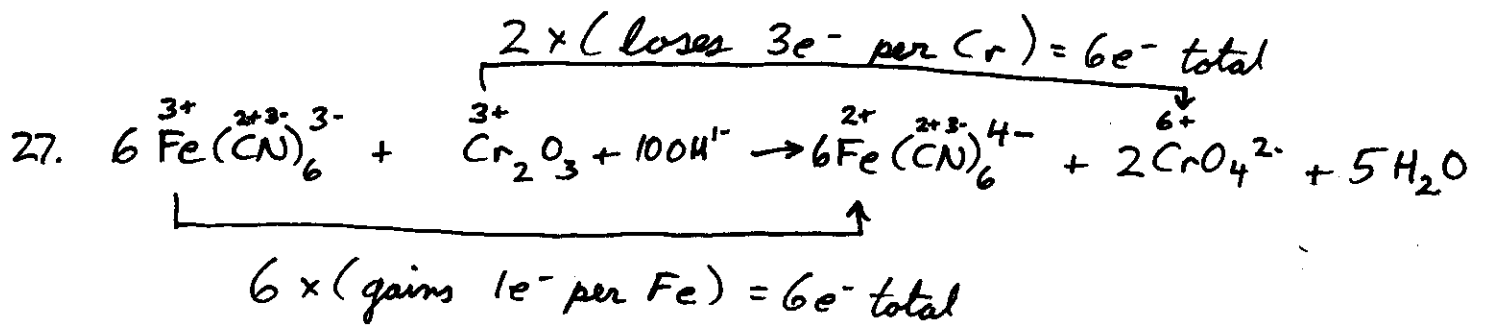 2 × (loses 3e⁻ per Cr) = 6e⁻ total
3+ 2+3- 3+ 2+ 2+3- 6+
27. 6 Fe(CN)₆³⁻ + Cr₂O₃ + 10OH¹⁻ → 6Fe(CN)₆⁴⁻ + 2CrO₄²⁻ + 5H₂O
6 × (gains 1e⁻ per Fe) = 6e⁻ total